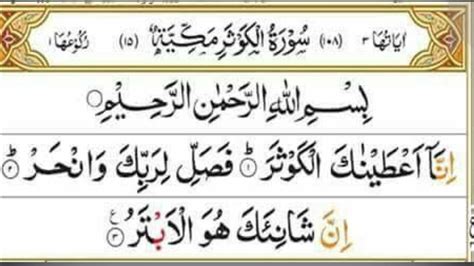 اٰيَاتُهَا ٣ (١٠٨) سُوْرَةُ الْكَوْثَرِ مَكِّيَّةٌ (١٥) رُكُوْعُهَا ١
بِسْمِ اللّٰهِ الرَّحْمٰنِ الرَّحِيْمِ
اِنَّاۤ اَعْطَيْنٰكَ الْكَوْثَرَ ﴿١﴾ فَصَلِّ لِرَبِّكَ وَانْحَرْ ﴿٢﴾
اِنَّ شَانِئَكَ هُوَ الْاَبْتَرُ ﴿٣﴾ ع